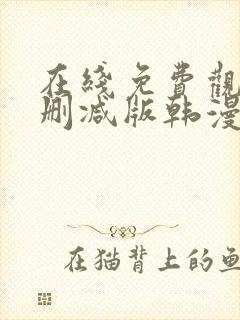 在綫免費觀
刪减版韩漫
在猫背上的鱼